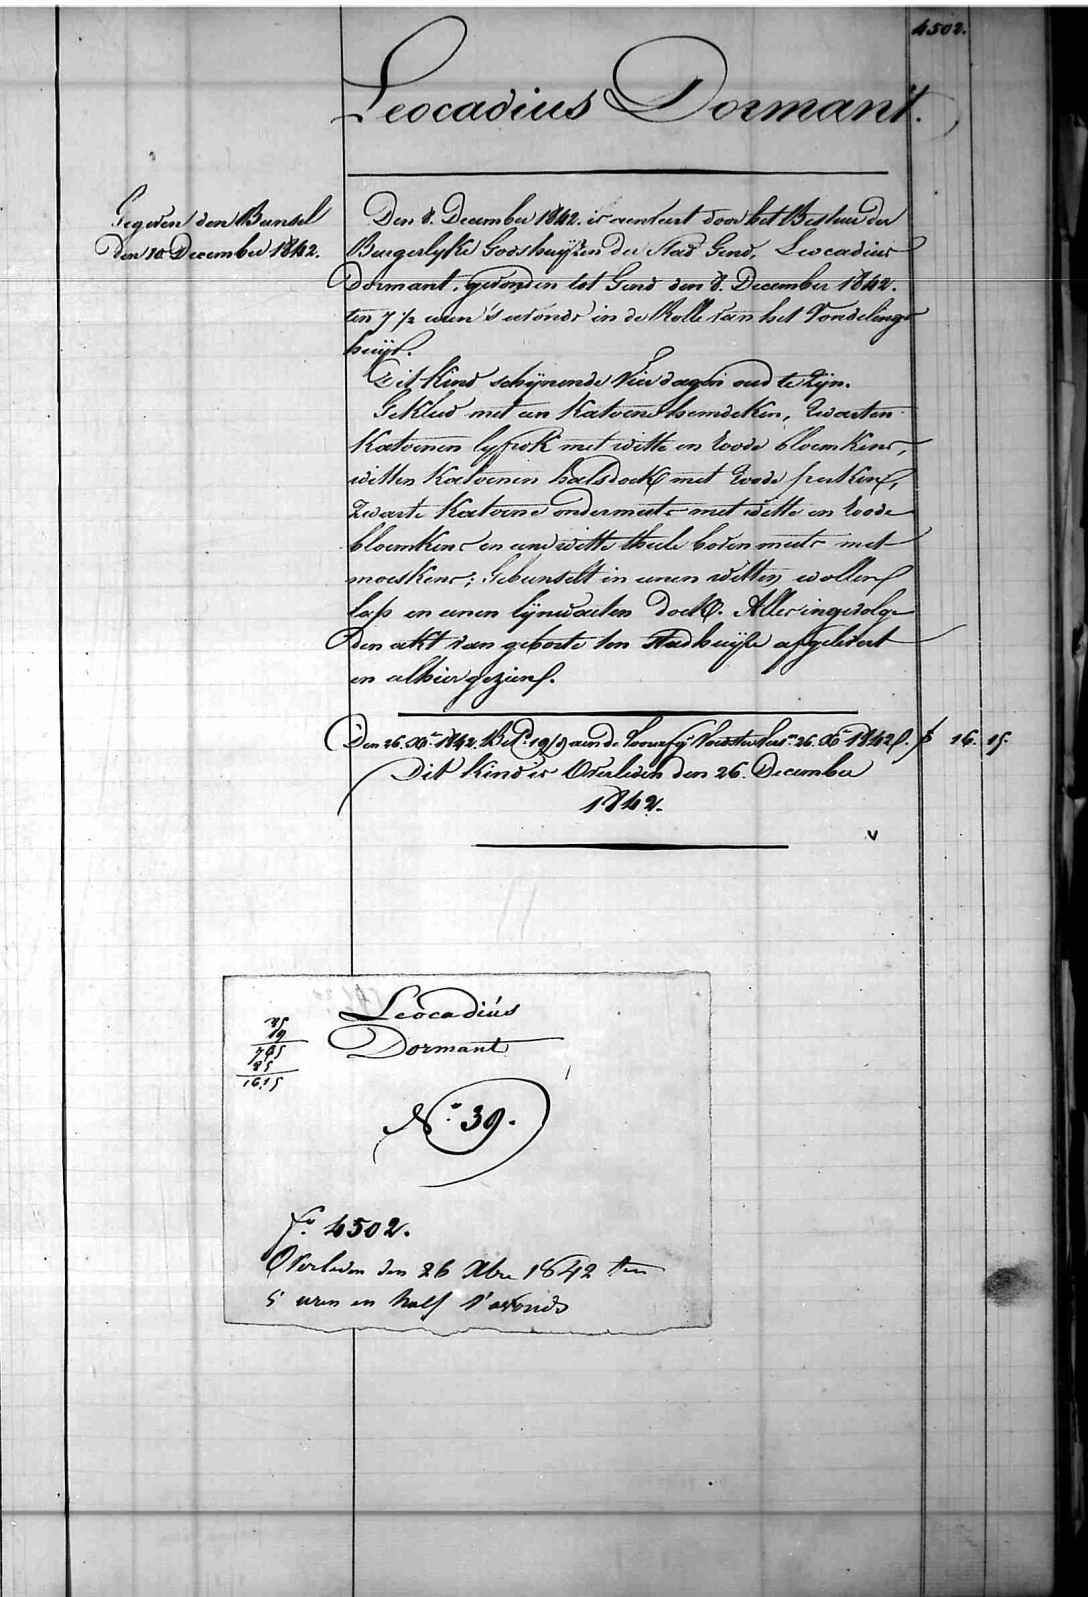 4502.
Leocadius Dormant.
Gegeven den Bunsel
Den 10 December 1842.
Den 8. December 1842. is aenveert door het Bestuer der
Burgerlyke Godshuijzen der Stad Gend, Leocadius
Dormant, gevonden tot Gend den 8. December 1842.
ten 7 1/2 uren 's avonds in de Rolle van het Vondelings
huijs.
Dit Kind schijnende Vier dagen oud te Zijn.
Gekleed met een Katoene hemdeken, Zwarten
Katoenen lyfrok met witte en Roode bloemkens,
witten Katoenen halsdoek met Roode perkens,
Zwarte Katoene ondermuts met witte en Roode
bloemkens en eene witte thule bovenmuts met
moeskens; Gebunselt in eenen witten wollen
lap en eenen lijnwaeten doek. Alles ingevolge
den akt van geboorte ten Stadhuijse afgelevert
en alhier gezien.
Den 26. Xb. 1842. 19/9 aen de 26. Xb 1842. f 16. 15.
Dit Kind is Overleden den 26. December
1842.
v
85
19
765
85
16.15
Leocadiús
Dormant
N° 39.
f° 4502.
Overleden den 26 Xbre 1842 ten
5 uren en half s'avonds